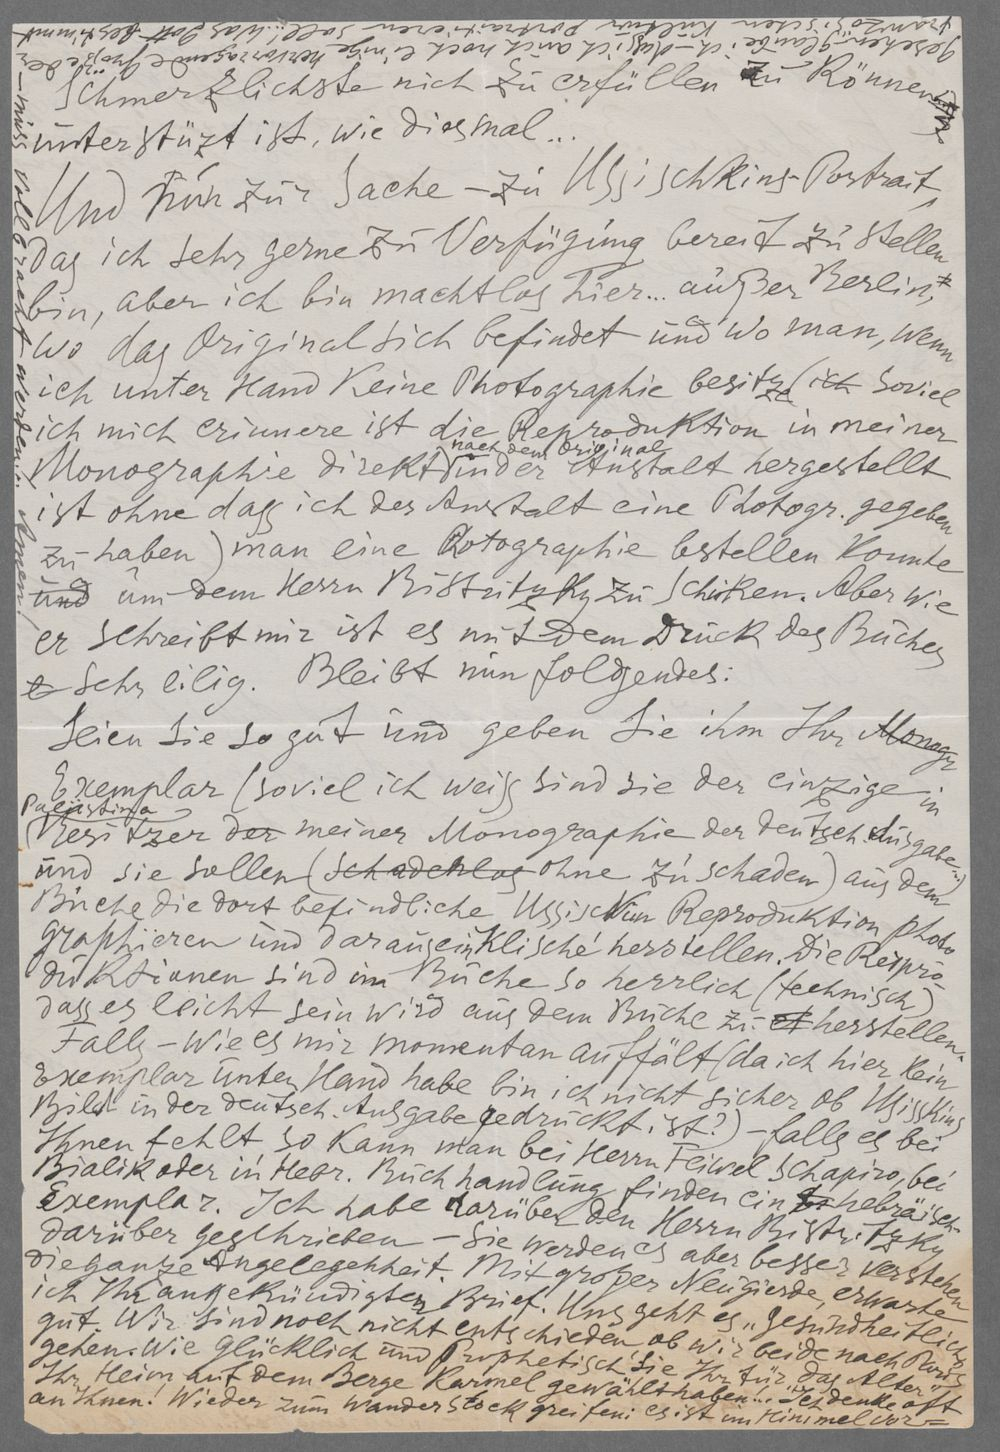 Schmerzlichste nich zu erfüllen zu können
unterstüzt ist, wie diesmal...
Und nun zur Sache – zu Ussischkins-Portrait,
das ich sehr gerne zu Verfügung bereit zu stellen
bin, aber ich bin machtlos hier... außer Berlin,
wo das Original sich befindet und wo man, wenn
ich unter Hand keine Photographie besitze (ich soviel
ich mich erinnere ist die Reproduktion in meiner
nach dem Original
Monographie direkt in der Anstalt hergestellt
ist ohne dass ich der Anstalt eine Photogr. gegeben
zu haben) man eine Photographie bstellen konnte
und um dem Herrn Bistritzky zu schiken. Aber wie
er schreibt mir ist es mit dem Druck des Buches
sehr eilig. Bleibt nun folgendes:
Seien Sie so gut und geben Sie ihm Ihr Monogr
Exemplar (soviel ich weiss sind sie der einzige in
Palästina
Besitzer der meiner Monographie der deutsch. Ausgabe..)
und sie sollen (schadenlos ohne zu schaden) aus dem
Buche die dort befindliche Ussischkin Reproduktion photo
graphieren und daraus ein Klische herstellen. Die Repro-
duktionen sind im Buche so herrlich (technisch)
dass es leicht sein wird aus dem Buche zu herstellen.
Falls – wie es mir momentan auffält (da ich hier kein
Exemplar unter Hand habe bin ich nicht sicher ob Ussiskins
Bild in der deutsch. Ausgabe gedruckt ist?) – falls es bei
Ihnen fehlt so kann man bei Herrn Feiwel Schapiro, bei
Bialik oder in Hebr. Buchhandlung finden ein hebräisch
Exemplar. Ich habe darüber den Herrn Bistritzky
darüber geschrieben – Sie werden es aber besser verstehen
die ganze Angelegenheit. Mit großer Neugierde, erwarte
ich Ihr angekündigten Brief. Uns geht es „gesundheitlich"
gut. Wir sind noch nicht entschieden ob wir beide nach Paris
gehen. Wie glücklich und prophetisch Sie Ihr für das Alter"
Ihr Heim auf dem Berge Karmel gewählt haben!.. Ich denke oft
an Ihnen! Wieder zum Wanderstock greifen: es ist im Himmel vor=
gesehen. Glaube ich – dass ich auch noch einige hervorragende Große der
französischen Kultur portraitieren soll... Was Gott bestimmt
– muss vollbracht werden!.. Amen!